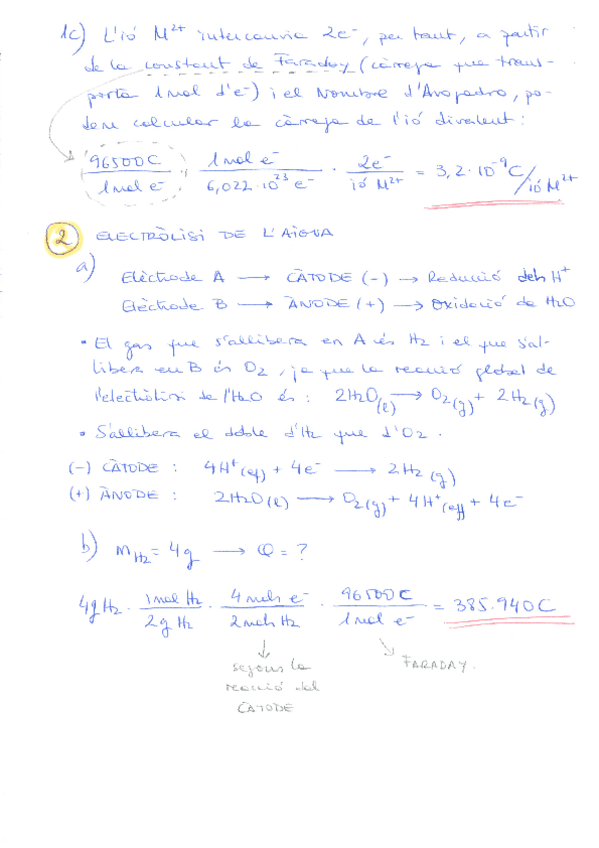 1c) L'ió M²⁺ intercanvia 2e⁻, per tant, a partir
de la constant de Faraday (càrrega que trans-
porta 1 mol d'e⁻) i el Nombre d'Avogadro, po-
dem calcular la càrrega de l'ió divalent:
96500C / 1 mol e⁻ · 1 mol e⁻ / 6,022·10²³ e⁻ · 2e⁻ / ió M²⁺ = 3,2·10⁻¹⁹ C/ió M²⁺
2 ELECTRÒLISI DE L'AIGUA
a) Elèctrode A → CÀTODE (-) → Reducció dels H⁺
Elèctrode B → ÀNODE (+) → Oxidació de H2O
• El gas que s'allibera en A és H2 i el que s'al-
libera en B és O2, ja que la reacció global de
l'electròlisi de l'H2O és: 2H2O(l) → O2(g) + 2H2(g)
• S'allibera el doble d'H2 que d'O2.
(-) CÀTODE : 4H⁺(aq) + 4e⁻ → 2H2(g)
(+) ÀNODE : 2H2O(l) → O2(g) + 4H⁺(aq) + 4e⁻
b) mH2 = 4g → Q = ?
4g H2 · 1 mol H2 / 2g H2 · 4 mols e⁻ / 2 mols H2 · 96500C / 1 mol e⁻ = 385.940C
segons la
reacció del
CÀTODE
FARADAY.